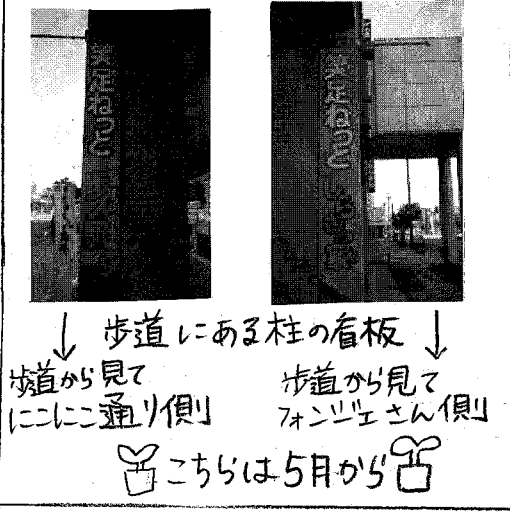 歩道にある柱の看板
歩道から見て
にこにこ通り側
歩道から見て
フォンジェさん側
こちらは5月から